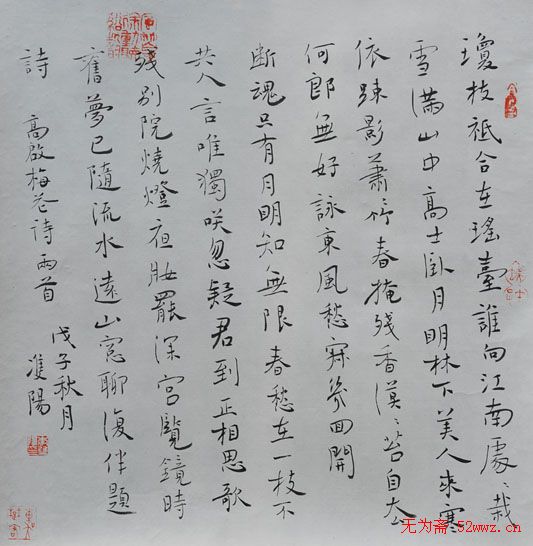 瓊枝祗合在瑤臺誰向江南處〻栽
雪滿山中高士臥月明林下美人來寒
依踈影蕭〻竹春掩殘香漠〻苔自去
何郎無好詠東風愁寂幾回開
断魂只有月明知無限春愁在一枝不
共人言唯獨咲忽疑君到正相思歌
殘別院燒燈夜妝罷深宮覽鏡時
舊夢已隨流水遠山窓聊復伴題
詩 高啟梅花詩兩首
戊子秋月
陽
无为斋:52wwz.cn